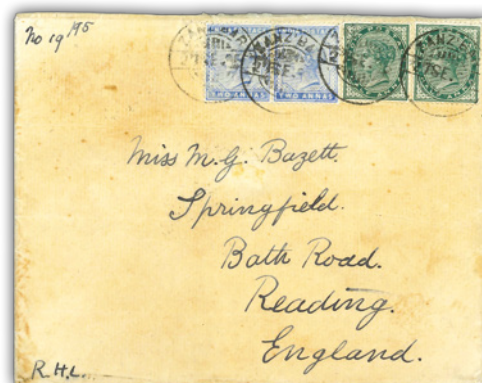 No 19 195
ZANZIBAR
ZANZIBAR
ZANZIBAR
TWO ANNAS
TWO ANNAS
Miss M.G. Bazett.
Springfield.
Bath Road.
Reading.
England.
R.H.L.